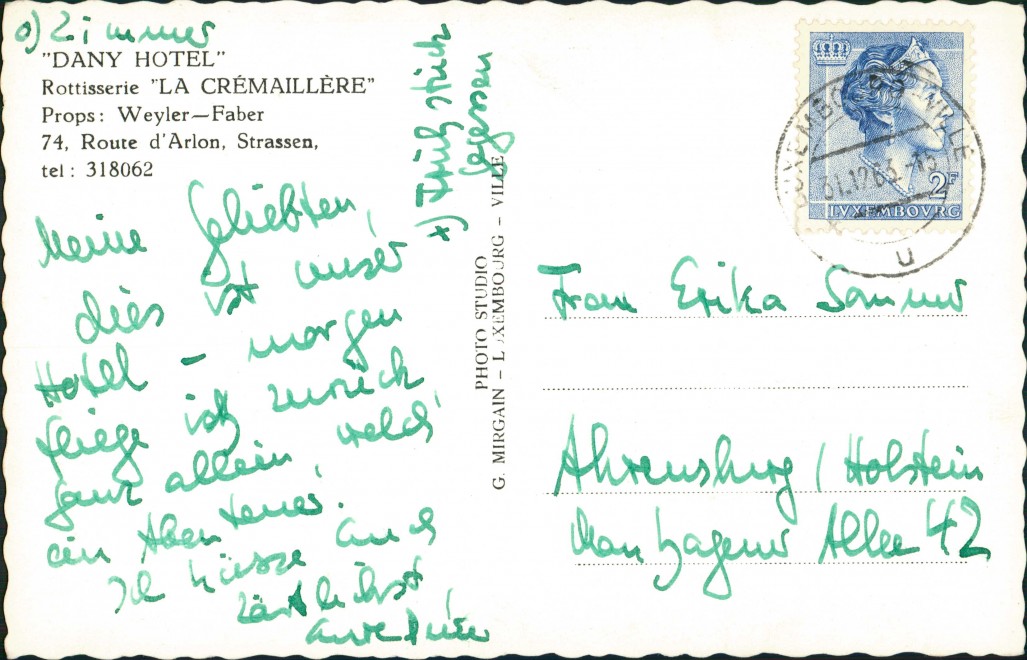 o) Zimmer
"DANY HOTEL"
Rottisserie "LA CRÉMAILLÈRE"
Props: Weyler—Faber
74, Route d'Arlon, Strassen,
tel: 318062
x) Frühstück
gegessen
Meine Geliebten,
dies ist unser
Hotel – morgen
fliege ich zurück
ganz allein, welch'
ein Abenteuer.
Ich küsse Euch
zärtlichst
Eure
PHOTO STUDIO
G. MIRGAIN - LUXEMBOURG - VILLE
2F
LVXEMBOVRG
LUXEMBOURG-VILLE
31.12.63.-15
U
Frau Erika Sommer
Ahrensburg / Holstein
Manhagener Allee 42